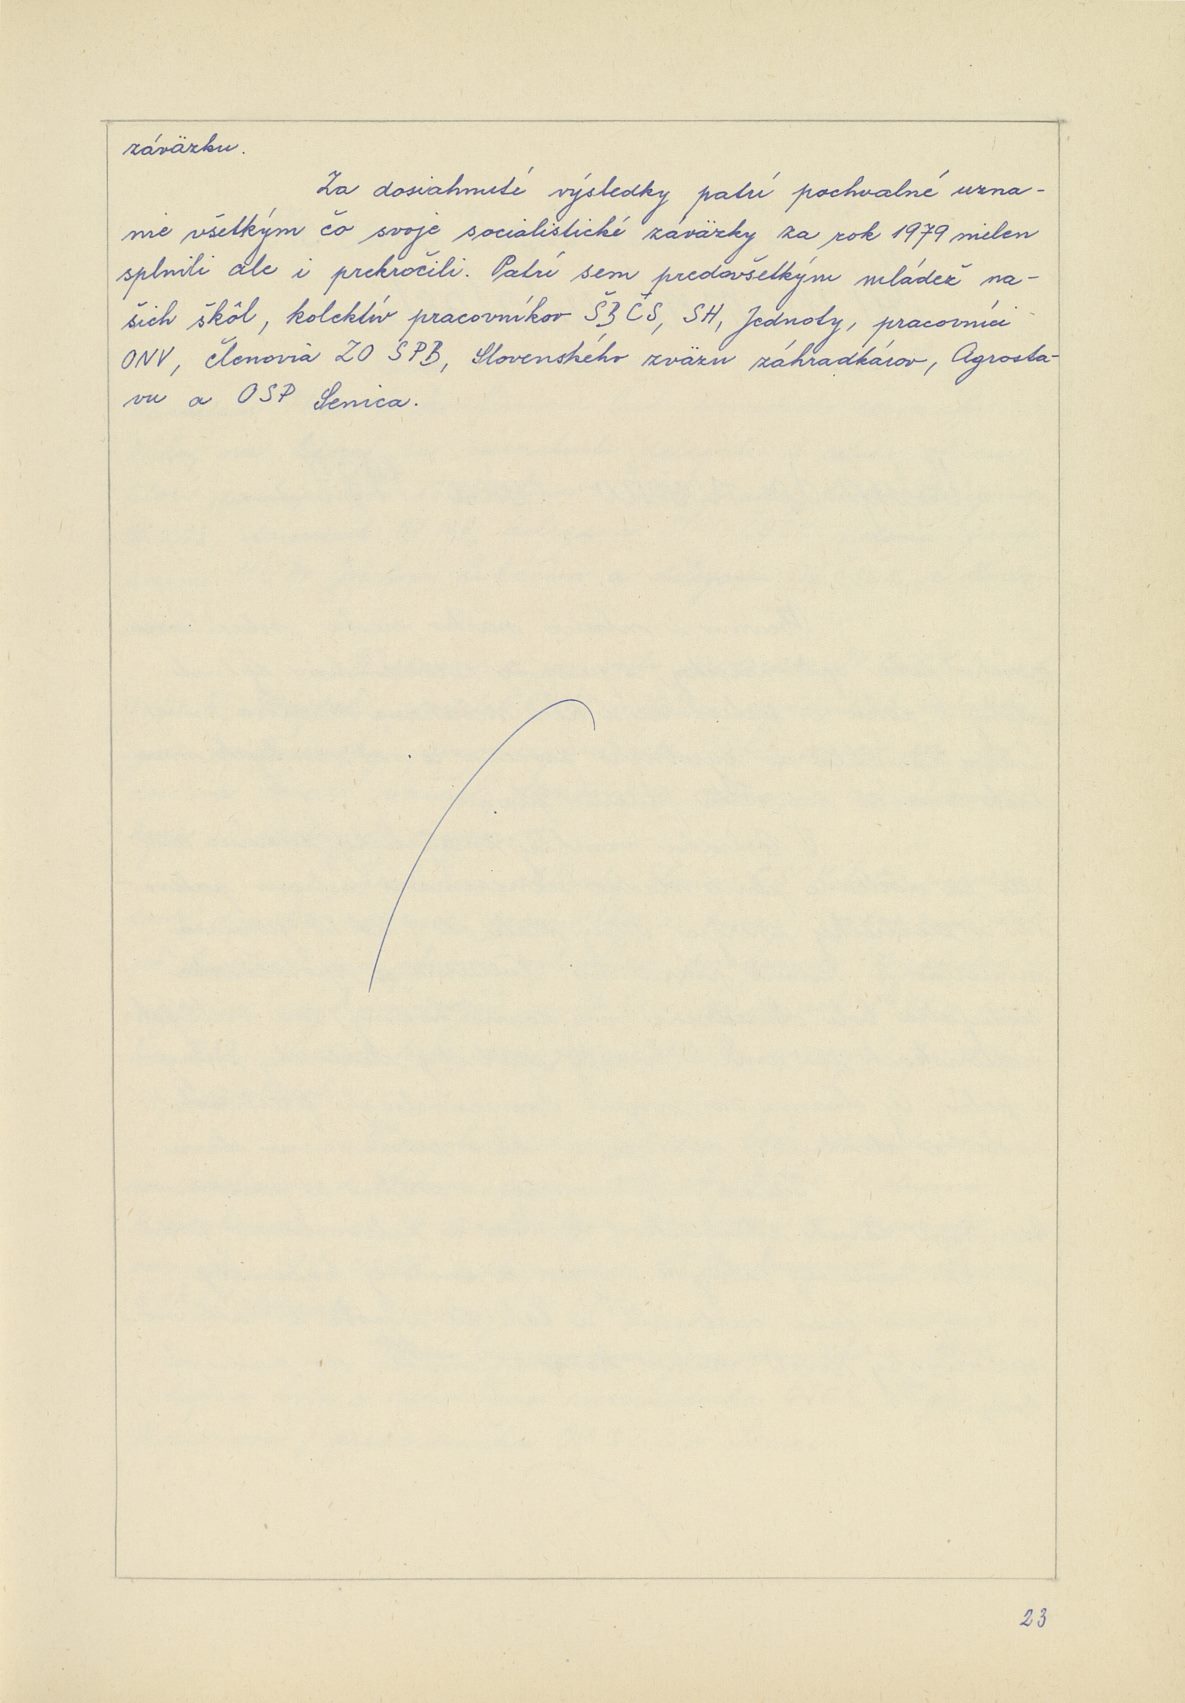 záväzku.
Za dosiahnuté výsledky patrí pochvalné uzna-
nie všetkým čo svoje socialistické záväzky za rok 1979 nielen
splnili ale i prekročili. Patrí sem predovšetkým mládež na-
šich škôl, kolektív pracovníkov ŠBČS, SH, Jednoty, pracovníci
ONV, členovia ZO ŠPB, Slovenského zväzu záhradkárov, Agrosta-
vu a OSP Senica.
23